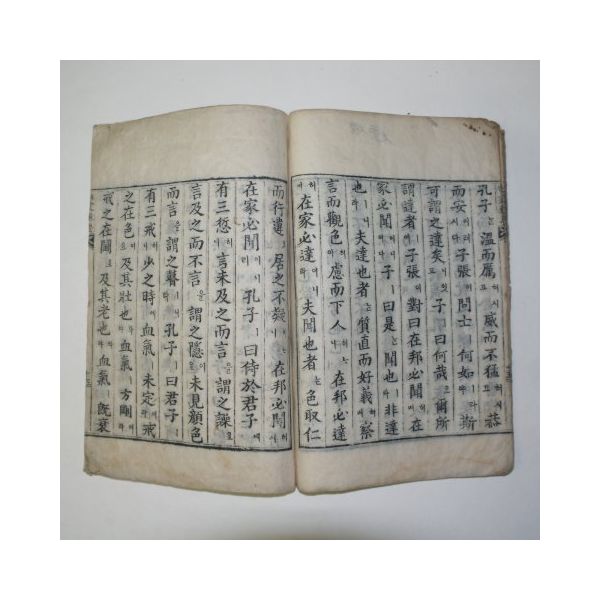 孔子는溫而厲ᄒᆞ시며威而不猛ᄒᆞ시며恭
而安이러시다子張이問士ㅣ何如ㅣ라斯
可謂之達矣니잇고子曰何哉오爾所
謂達者여子張이對曰在邦必聞ᄒᆞ며在
家必聞이니이다子ㅣ曰是는聞也ㅣ라非達
也ㅣ니라夫達也者는質直而好義ᄒᆞ며察
言而觀色ᄒᆞ야慮而下人ᄒᆞᄂᆞ니在邦必達
ᄒᆞ며在家必達이니라夫聞也者는色取仁
而行違오居之不疑ᄒᆞᄂᆞ니在邦必聞ᄒᆞ며
在家必聞이니라孔子ㅣ曰侍於君子에
有三愆ᄒᆞ니言未及之而言을謂之躁오
言及之而不言을謂之隱이오未見顔色
而言을謂之瞽ㅣ니라孔子ㅣ曰君子ㅣ
有三戒ᄒᆞ니少之時에血氣ㅣ未定이라戒
之在色이오及其壯也ᄒᆞ야血氣ㅣ方剛이라
戒之在鬪ㅣ오及其老也ᄒᆞ야血氣ㅣ旣衰